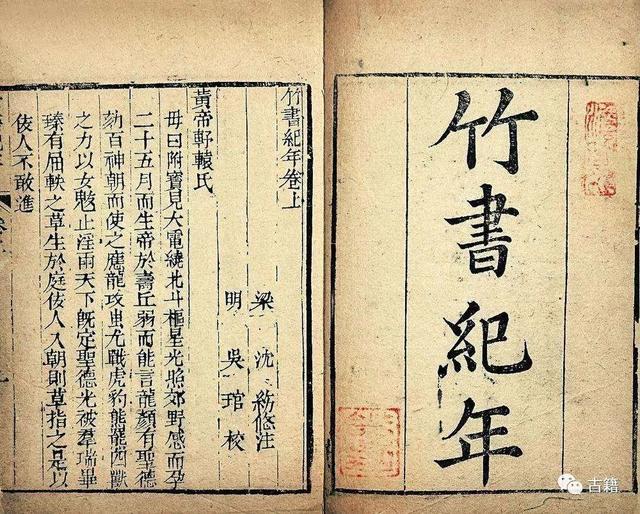 竹書紀年
竹書紀年卷上
梁 沈約 注
明 吳琯校
黃帝軒轅氏
母曰附寶見大電繞北斗樞星光照郊野感而孕
二十五月而生帝於壽丘弱而能言龍顏有聖德
劾百神朝而使之應龍攻蚩尤戰虎豹熊羆四獸
之力以女魃止淫雨天下既定聖德光被羣瑞畢
臻有屈軼之草生於庭佞人入朝則草指之是以
佞人不敢進
古籍